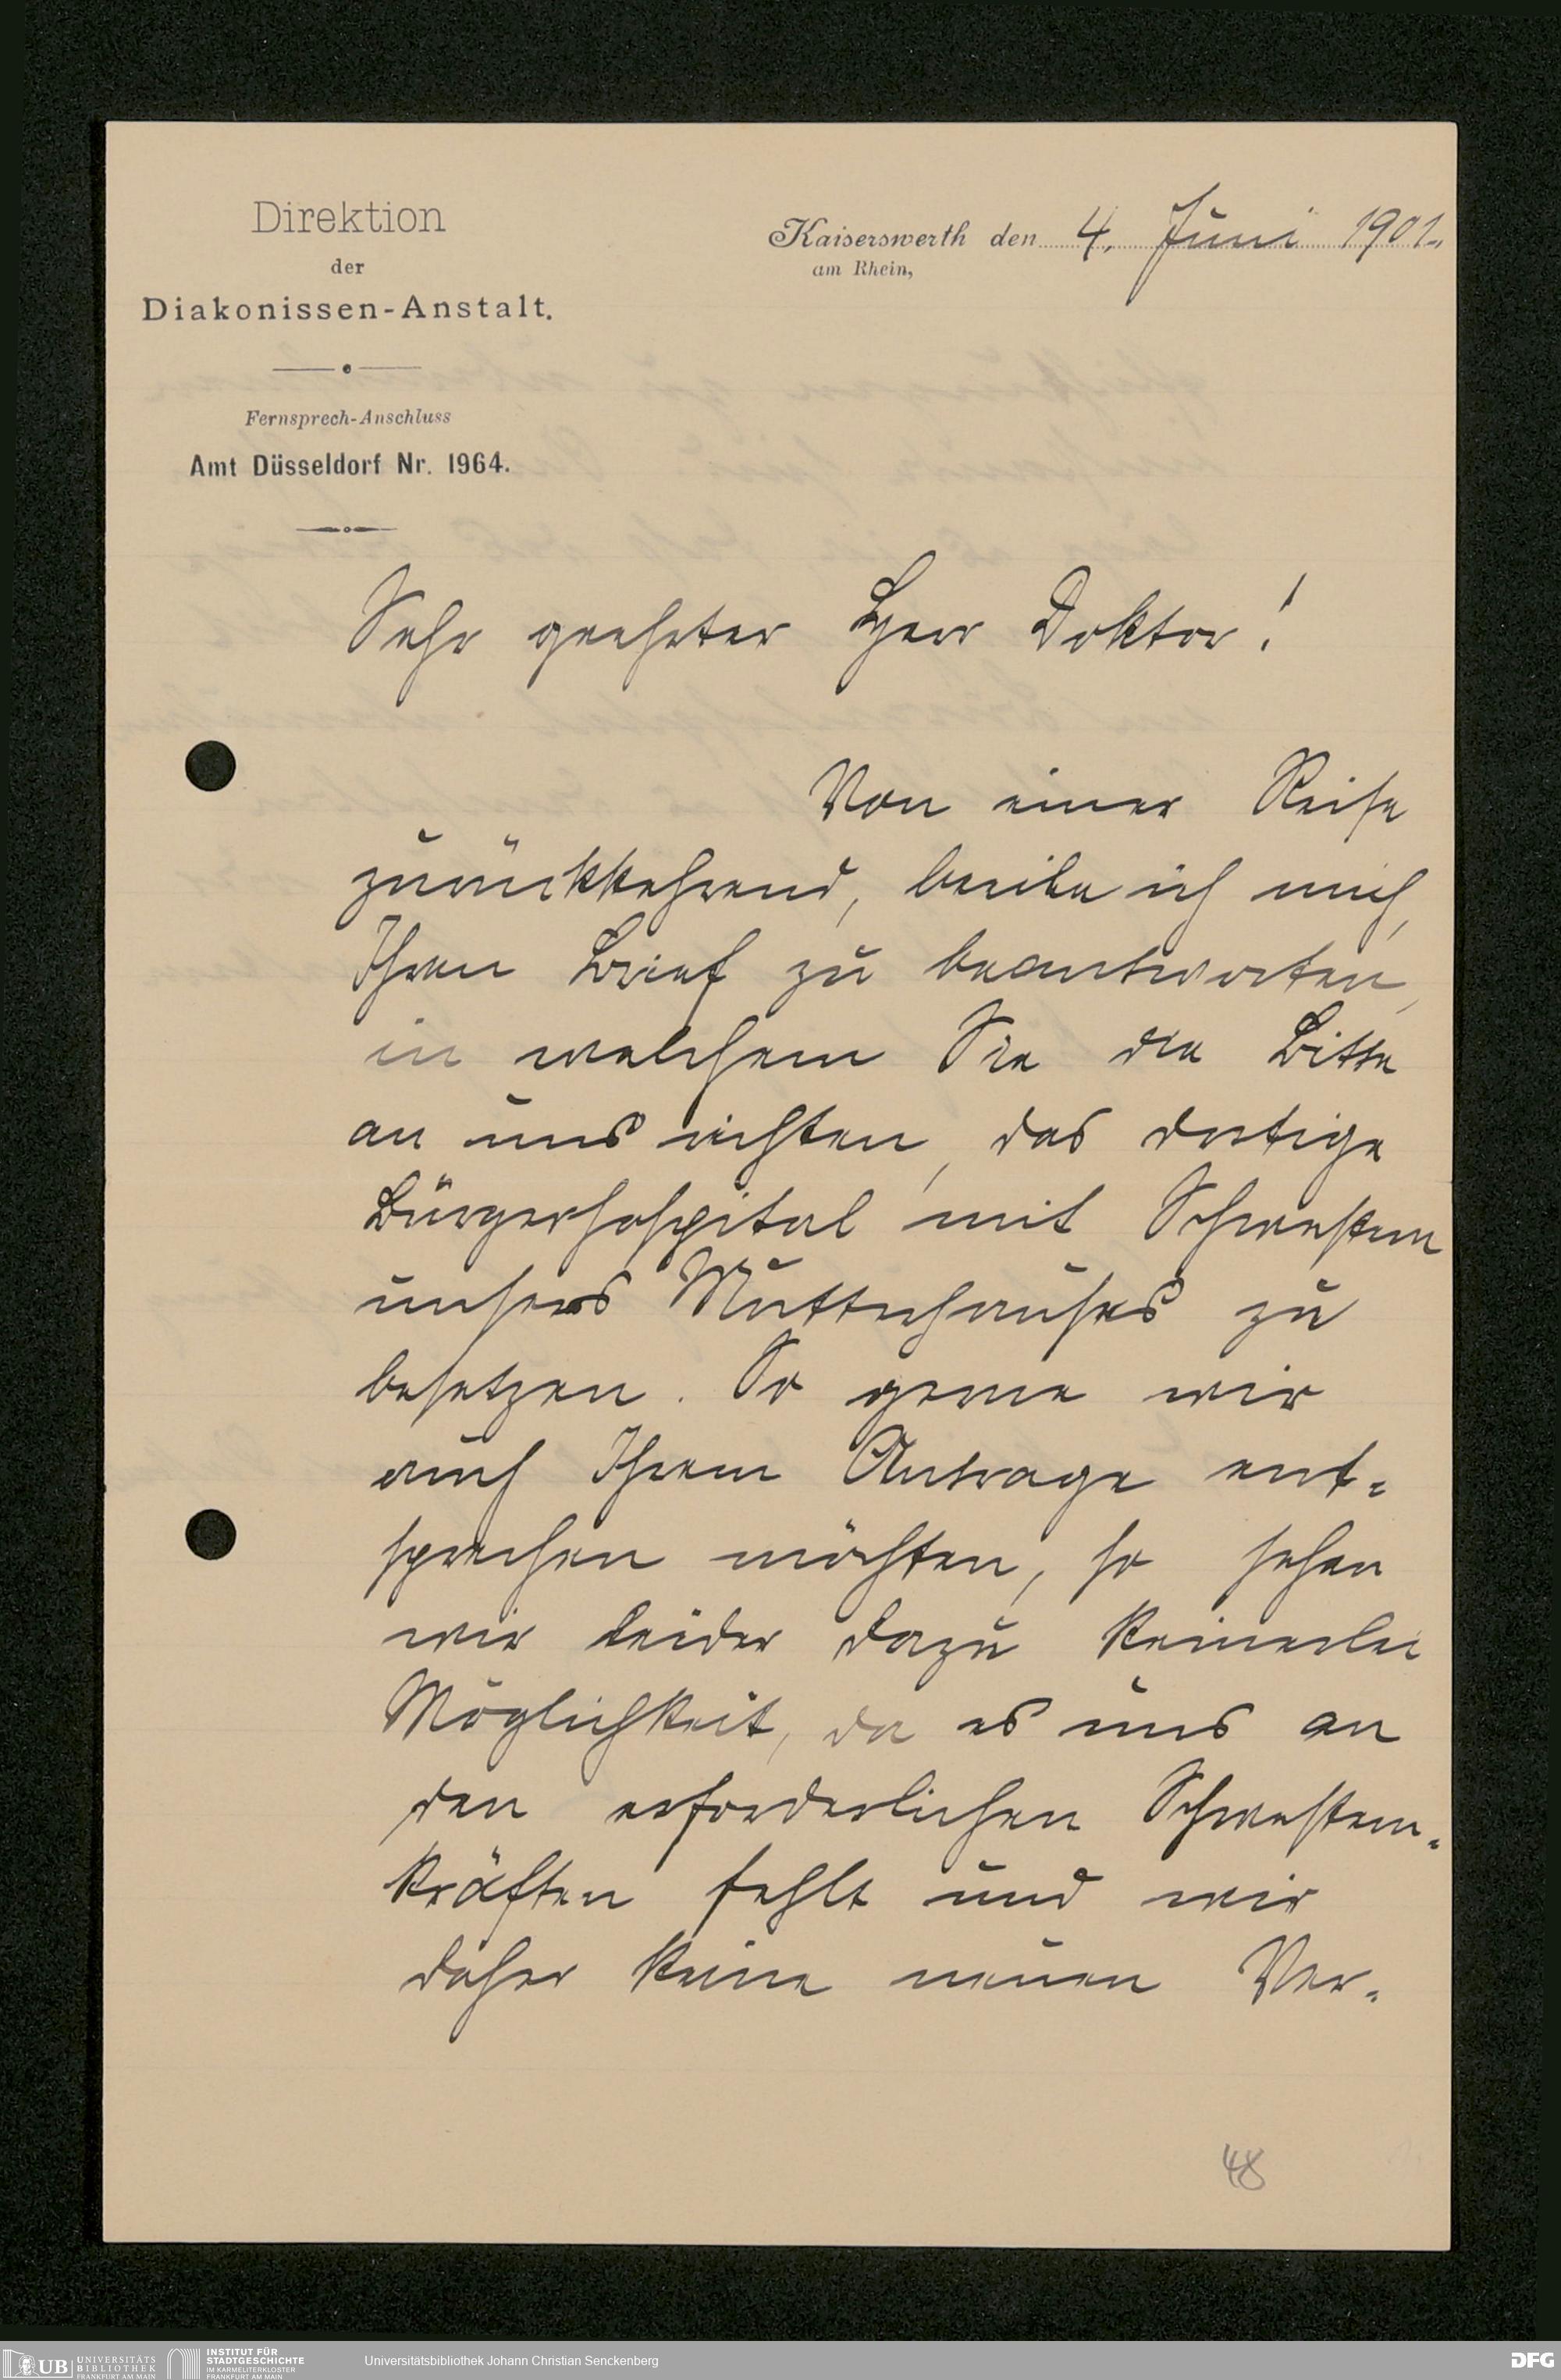 Direktion
der
Diakonissen-Anstalt.
Fernsprech-Anschluss
Amt Düsseldorf Nr. 1964.
Kaiserswerth den 4. Juni 1901.
am Rhein,
Sehr geehrter Herr Doktor!
Von einer Reise
zurückkehrend, beeile ich mich,
Ihren Brief zu beantworten,
in welchem Sie die Bitte
an uns richten, das dortige
Bürgerhospital mit Schwestern
unsers Mutterhauses zu
besetzen. So gerne wir
auch Ihrem Antrage ent-
sprechen möchten, so sehen
wir leider dazu keinerlei
Möglichkeit, da es uns an
den erforderlichen Schwestern-
kräften fehlt und wir
daher keine neuen Ver-
48
UB UNIVERSITÄTS
BIBLIOTHEK
FRANKFURT AM MAIN
INSTITUT FÜR
STADTGESCHICHTE
IM KARMELITERKLOSTER
FRANKFURT AM MAIN
Universitätsbibliothek Johann Christian Senckenberg
DFG